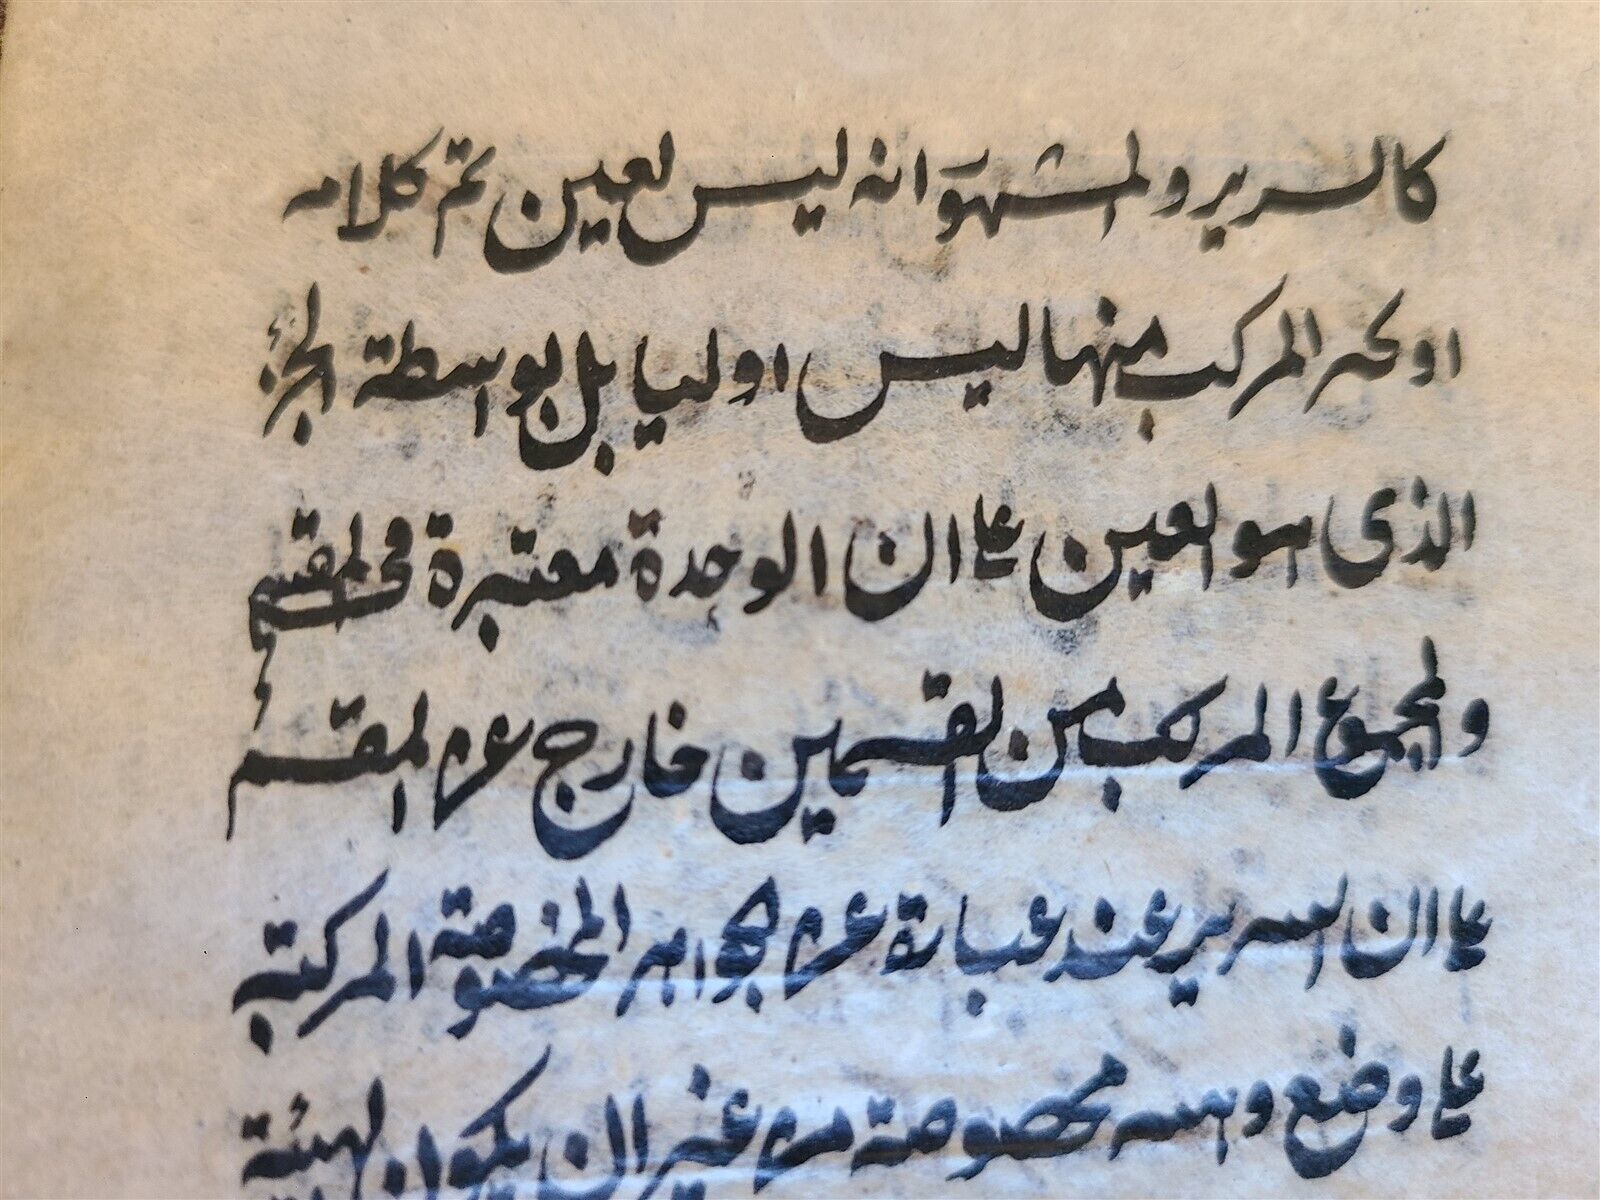 كالسرير والمشهور انه ليس بعين تم كلامه
او تحيز المركب منها ليس اوليا بل بواسطة الجزء
الذى هو العين على ان الوحدة معتبرة فى المقسم
والمجموع المركب من القسمين خارج عن المقسم
على ان السرير عند عبارة عن الجواهر المخصوصة المركبة
على وضع وهيئة مخصوصة من غير ان يكون لهيئة